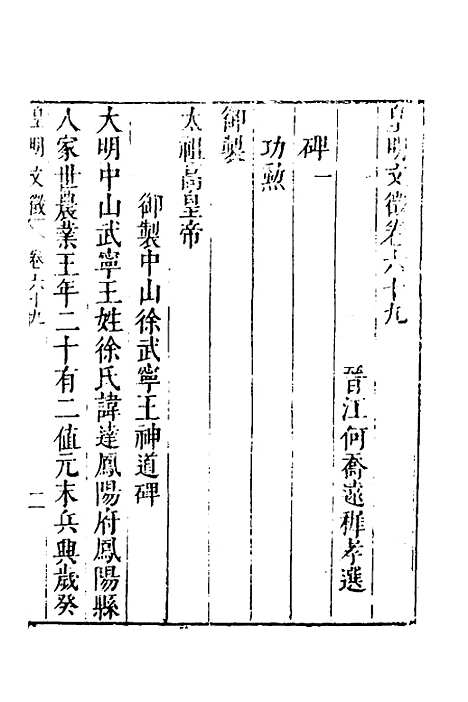 皇明文徵卷六十九
晉江何喬遠稚孝選
碑一
功勲
御製
太祖高皇帝
御製中山徐武寧王神道碑
大明中山武寧王姓徐氏諱達鳳陽府鳳陽縣
人家世農業王年二十有二值元末兵興歲癸
皇明文徵 卷六十九 一